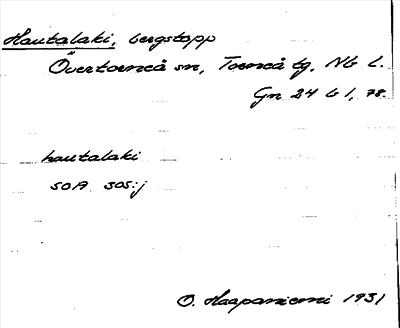 Hautalaki, bergstopp
Övertorneå sn, Torneå tg, Nb l.
Gn 24 b 1, 78.
hautalaki
SOA 305:j
O. Haapaniemi 1931